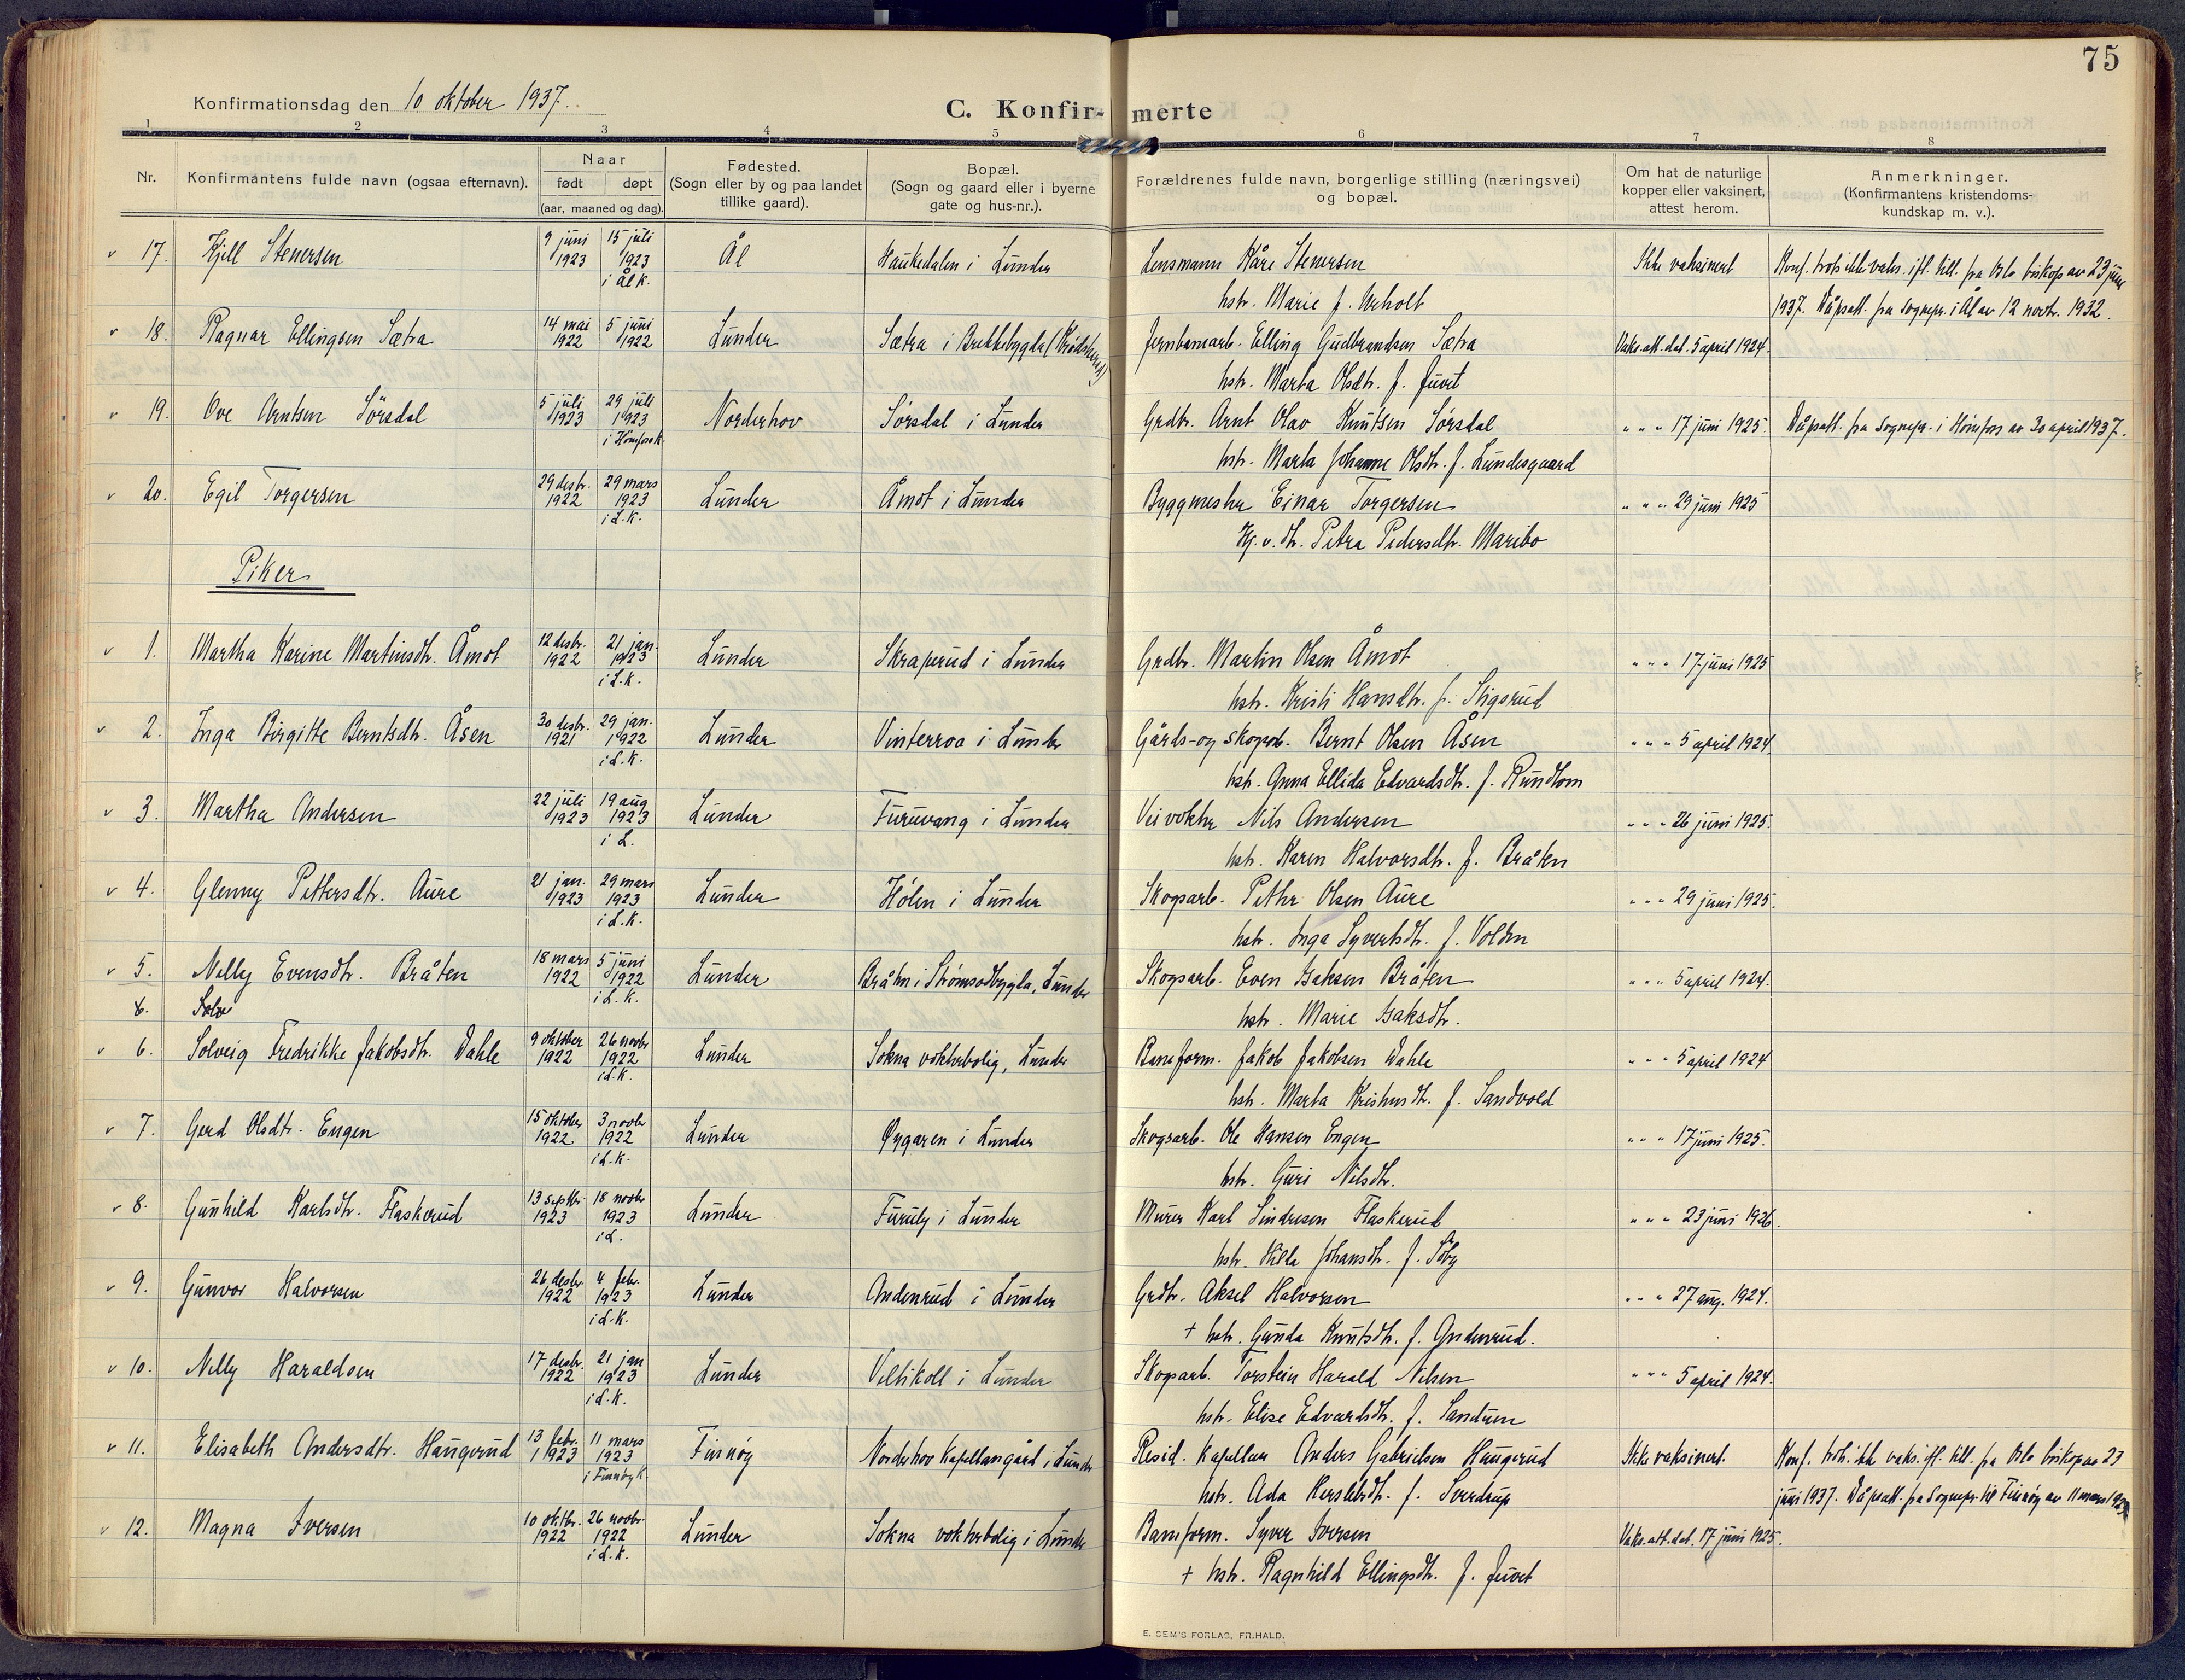 75
Konfirmationsdag den 10 oktober 1937.
C. Konfir- merte
1 2 3 4 5 6 7 8
Nr. Konfirmantens fulde navn (ogsaa efternavn). Naar født døpt (aar, maaned og dag). Fødested. (Sogn eller by og paa landet tillike gaard). Bopæl. (Sogn og gaard eller i byerne gate og hus-nr.). Forældrenes fulde navn, borgerlige stilling (næringsvei) og bopæl. Om hat de naturlige kopper eller vaksinert, attest herom. Anmerkninger. (Konfirmantens kristendoms-kundskap m. v.).
v 17. Kjell Stenersen 9 juni 1923 15 juli 1923 i Ål k. Ål Haukedalen i Lunder Lensmann Kåre Stenersen Ikke vaksinert Konf. trots ikke vaks. ifl. till. fra Oslo biskop av 23 juni
hstr. Marie f. Urholt 1937. Dåpsatt. fra sognepr. i Ål av 12 novbr. 1932.
v 18. Ragnar Ellingsen Sætra 14 mai 1922 5 juni 1922 Lunder Sætra i Brekkebygda (Krødsherad) Jernbanearb. Elling Gudbrandsen Sætra Vaks.att.dat. 5 april 1924.
hstr. Marta Olsdtr. f. Juvet
v 19. Ove Arntsen Sörsdal 5 juli 1923 29 juli 1923 i Hönefoss k. Norderhov Sörsdal i Lunder Grdbr. Arnt Olav Knutsen Sörsdal " " " 17 juni 1925. Dåpsatt. fra sognepr. i Hönefoss av 30 april 1937.
hstr. Marta Johanne Olsdtr. f. Lundesgaard
v 20. Egil Torgersen 29 desbr. 1922 29 mars 1923 i L.K. Lunder Åmot i Lunder Byggmester Einar Torgersen " " " 29 juni 1925
Hj. v. dtr. Petra Pedersdtr. Maribo
Piker
v 1. Martha Karine Martinsdtr. Åmot 12 desbr. 1922 21 jan. 1923 i L.K. Lunder Skraperud i Lunder Grdbr. Martin Olsen Åmot " " " 17 juni 1925
hstr. Kristi Hansdtr. f. Stigsrud
v 2. Inga Birgitte Berntsdtr. Åsen 30 desbr. 1921 29 jan. 1922 i L.K. Lunder Vinterroa i Lunder Gårds- og skogsarb. Bernt Olsen Åsen " " " 5 april 1924
hstr. Anna Ellida Edvardsdtr. f. Rundtom
v 3. Martha Andersen 22 juli 1923 19 aug 1923 i L. Lunder Furuvang i Lunder Veivokter Nils Andersen " " " 26 juni 1925.
hstr. Karen Halvorsdtr. f. Bråten
v 4. Glenny Pettersdtr. Aure 21 jan. 1923 29 mars 1923 i L.K. Lunder Hölen i Lunder Skogsarb. Petter Olsen Aure " " " 29 juni 1925.
hstr. Inga Syvertsdtr. f. Volden
v 5. Nelly Evensdtr. Bråten 18 mars 1922 5 juni 1922 i L.K. Lunder Bråten i Strömsodbygda, Lunder Skogsarb. Even Isaksen Bråten " " " 5 april 1924.
6. Solv hstr. Marie Isaksdtr.
v 6. Solveig Fredrikke Jakobsdtr. Dahle 9 oktober 1922 26 novbr 1922 i L.K. Lunder Sokna vokterbolig, Lunder Baneform. Jakob Jakobsen Dahle " " " 5 april 1924
hstr. Marta Kristensdtr. f. Sandvold
v 7. Gerd Olsdtr. Engen 15 oktober 1922 3 novbr 1922 i L.K. Lunder Øygaren i Lunder Skogsarb. Ole Hansen Engen " " " 17 juni 1925.
hstr. Guri Nilsdtr.
v 8. Gunhild Karlsdtr. Flaskerud 13 septbr. 1923 18 novbr 1923 i L. Lunder Furuly i Lunder Murer Karl Sindresen Flaskerud " " " 23 juni 1926.
hstr. Hilda Johansdtr. f. Söby
v 9. Gunvor Halvorsen 26 desbr. 1922 4 febr. 1923 i L.K. Lunder Andenrud i Lunder Grdbr. Aksel Halvorsen " " " 27 aug. 1924.
+ hstr. Gunda Knutsdtr. f. Andenrud.
v 10. Nelly Haraldsen 17 desbr. 1922 21 jan 1923 i L.K. Lunder Veltikoll i Lunder Skogsarb. Torstein Harald Nilsen " " " 5 april 1924.
hstr. Elise Edvardsdtr. f. Sandum
v 11. Elisabeth Andersdtr. Haugerud 13 febr. 1923 11 mars 1923 i Finnöy k Finnöy Norderhov Kapellangård i Lunder Resid. kapellan Anders Gabrielsen Haugerud Ikke vaksinert. Konf. trots ikke vaks. ifl. till. fra Oslo biskop av 23
hstr. Ada Herslebsdtr. f. Sverdrup juni 1937. Dåpsatt. fra Sognepr. til Finnöy av 11 mars 1923
v 12. Magna Iversen 10 oktbr. 1922 26 novbr. 1922 i L.K. Lunder Sokna vokterbolig i Lunder Baneform. Syver Iversen Vaks.att.dat. 17 juni 1925.
+ hstr. Ragnhild Ellingsdtr. f. Juvet
E. SEM'S FORLAG, FR.HALD.